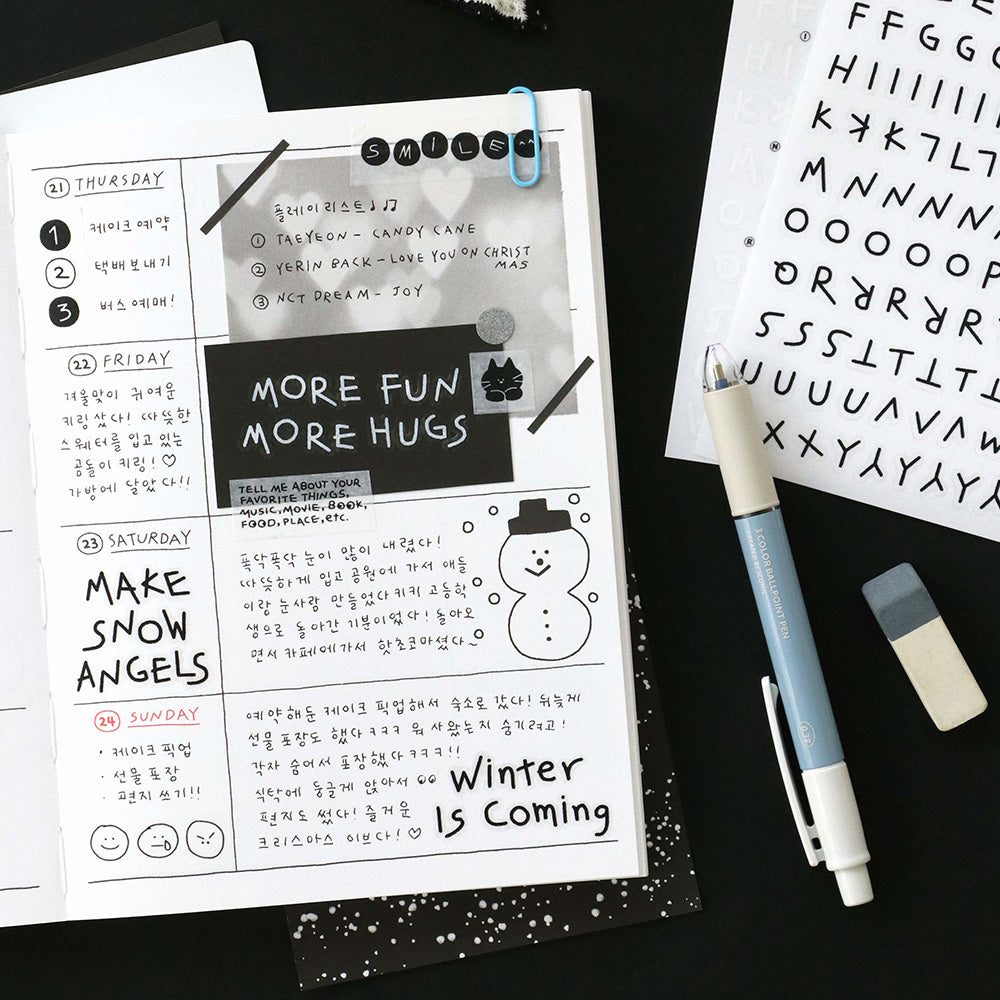 SMILE ^^
21 THURSDAY
1 케이크 예약
2 택배 보내기
3 버스 예매!
플레이리스트♩♫
① TAEYEON - CANDY CANE
② YERIN BACK - LOVE YOU ON CHRIST
MAS
③ NCT DREAM - JOY
MORE FUN
MORE HUGS
22 FRIDAY
겨울맞이 귀여운
키링 샀다! 따뜻한
스웨터를 입고 있는
곰돌이 키링! ♡
가방에 달았다!!
TELL ME ABOUT YOUR
FAVORITE THINGS,
MUSIC, MOVIE, BOOK,
FOOD, PLACE, etc.
23 SATURDAY
MAKE
SNOW
ANGELS
폭닥폭닥 눈이 많이 내렸다!
따뜻하게 입고 공원에 가서 애들
이랑 눈사람 만들었다 키키 고등학
생으로 돌아간 기분이었다! 돌아오
면서 카페에 가서 핫초코마셨다~
24 SUNDAY
· 케이크 픽업
· 선물 포장
· 편지 쓰기!!
예약해둔 케이크 픽업해서 숙소로 갔다! 뒤늦게
선물 포장도 했다 ㅋㅋㅋ 뭐 사왔는지 숨기려고!
각자 숨어서 포장했다 ㅋㅋㅋ!!
식탁에 둥글게 앉아서
편지도 썼다! 즐거운
크리스마스 이브다! ♡
Winter
Is Coming
FFGGG
HIIIIIII
KKKLL
MNNNN
OOOOOP
QRRRR
SSSSTTTT
UUUUVVW
XXYYYY
3 COLOR BALLPOINT PEN
CREATED BY ICONIC
0.38